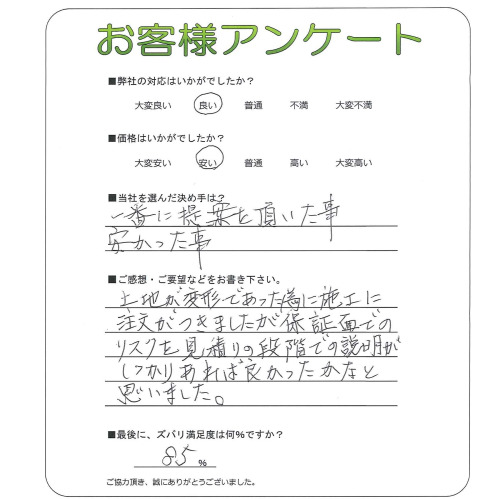 お客様アンケート
■弊社の対応はいかがでしたか?
大変良い 良い 普通 不満 大変不満
■価格はいかがでしたか?
大変安い 安い 普通 高い 大変高い
■当社を選んだ決め手は?
一番に提案を頂いた事
安かった事
■ご感想・ご要望などをお書き下さい。
土地が変形であった為に施工に
注文がつきましたが保証面での
リスクを見積りの段階での説明が
しっかりあれば良かったかなと
思いました。
■最後に、ズバリ満足度は何%ですか?
85 %
ご協力頂き、誠にありがとうございました。